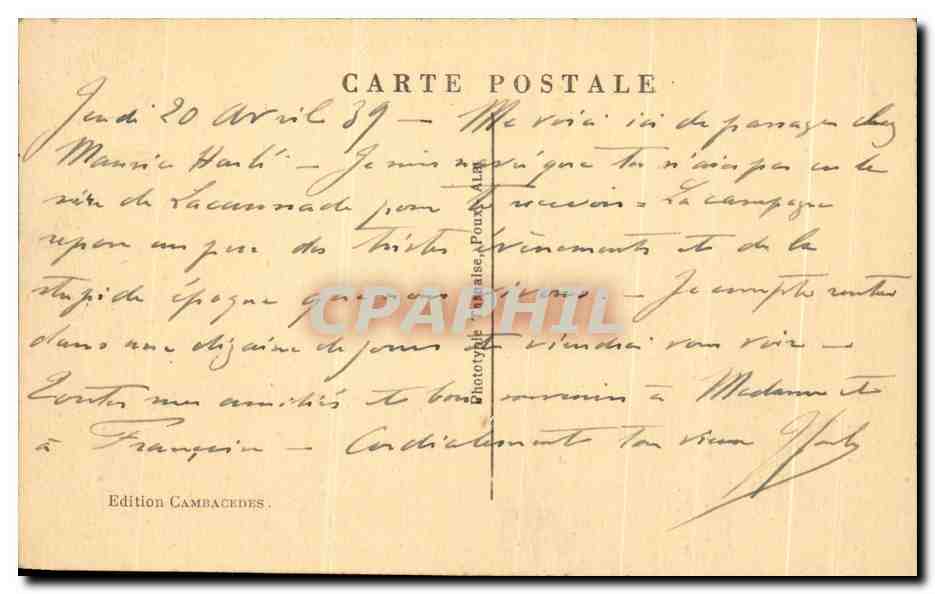 CARTE POSTALE
Jeudi 20 Avril 39 — Me voici ici de passage chez
Maurice — Je suis navré que tu n'aies pas eu le
de Lacaunade pour te recevoir = La campagne
repose un peu des tristes évènements et de la
stupide époque que nous vivons. — Je compte rentrer
dans une dizaine de jours et viendrai vous voir —
Toutes mes amitiés et bons souvenirs à Madame et
à Françoise — Cordialement ton vieux
Edition CAMBACEDES.
Phototypie Tarnaise, Poux, Albi
CPAPHIL